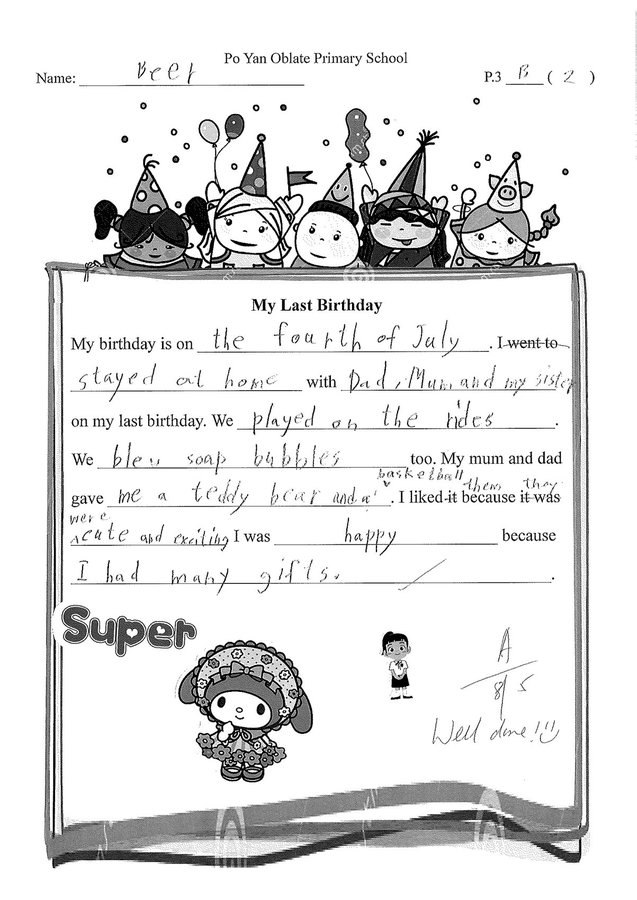 Po Yan Oblate Primary School
Name: Beer P.3 B ( 2 )
My Last Birthday
My birthday is on the fourth of July . I went to
stayed at home with Dad, Mum and my sister
on my last birthday. We played on the rides .
We blew soap bubbles too. My mum and dad
basketball
gave me a teddy bear and a . I liked it because it was
them they
were
cute and exciting I was happy because
I had many gifts. .
Super
A
8/5
Well done!!!